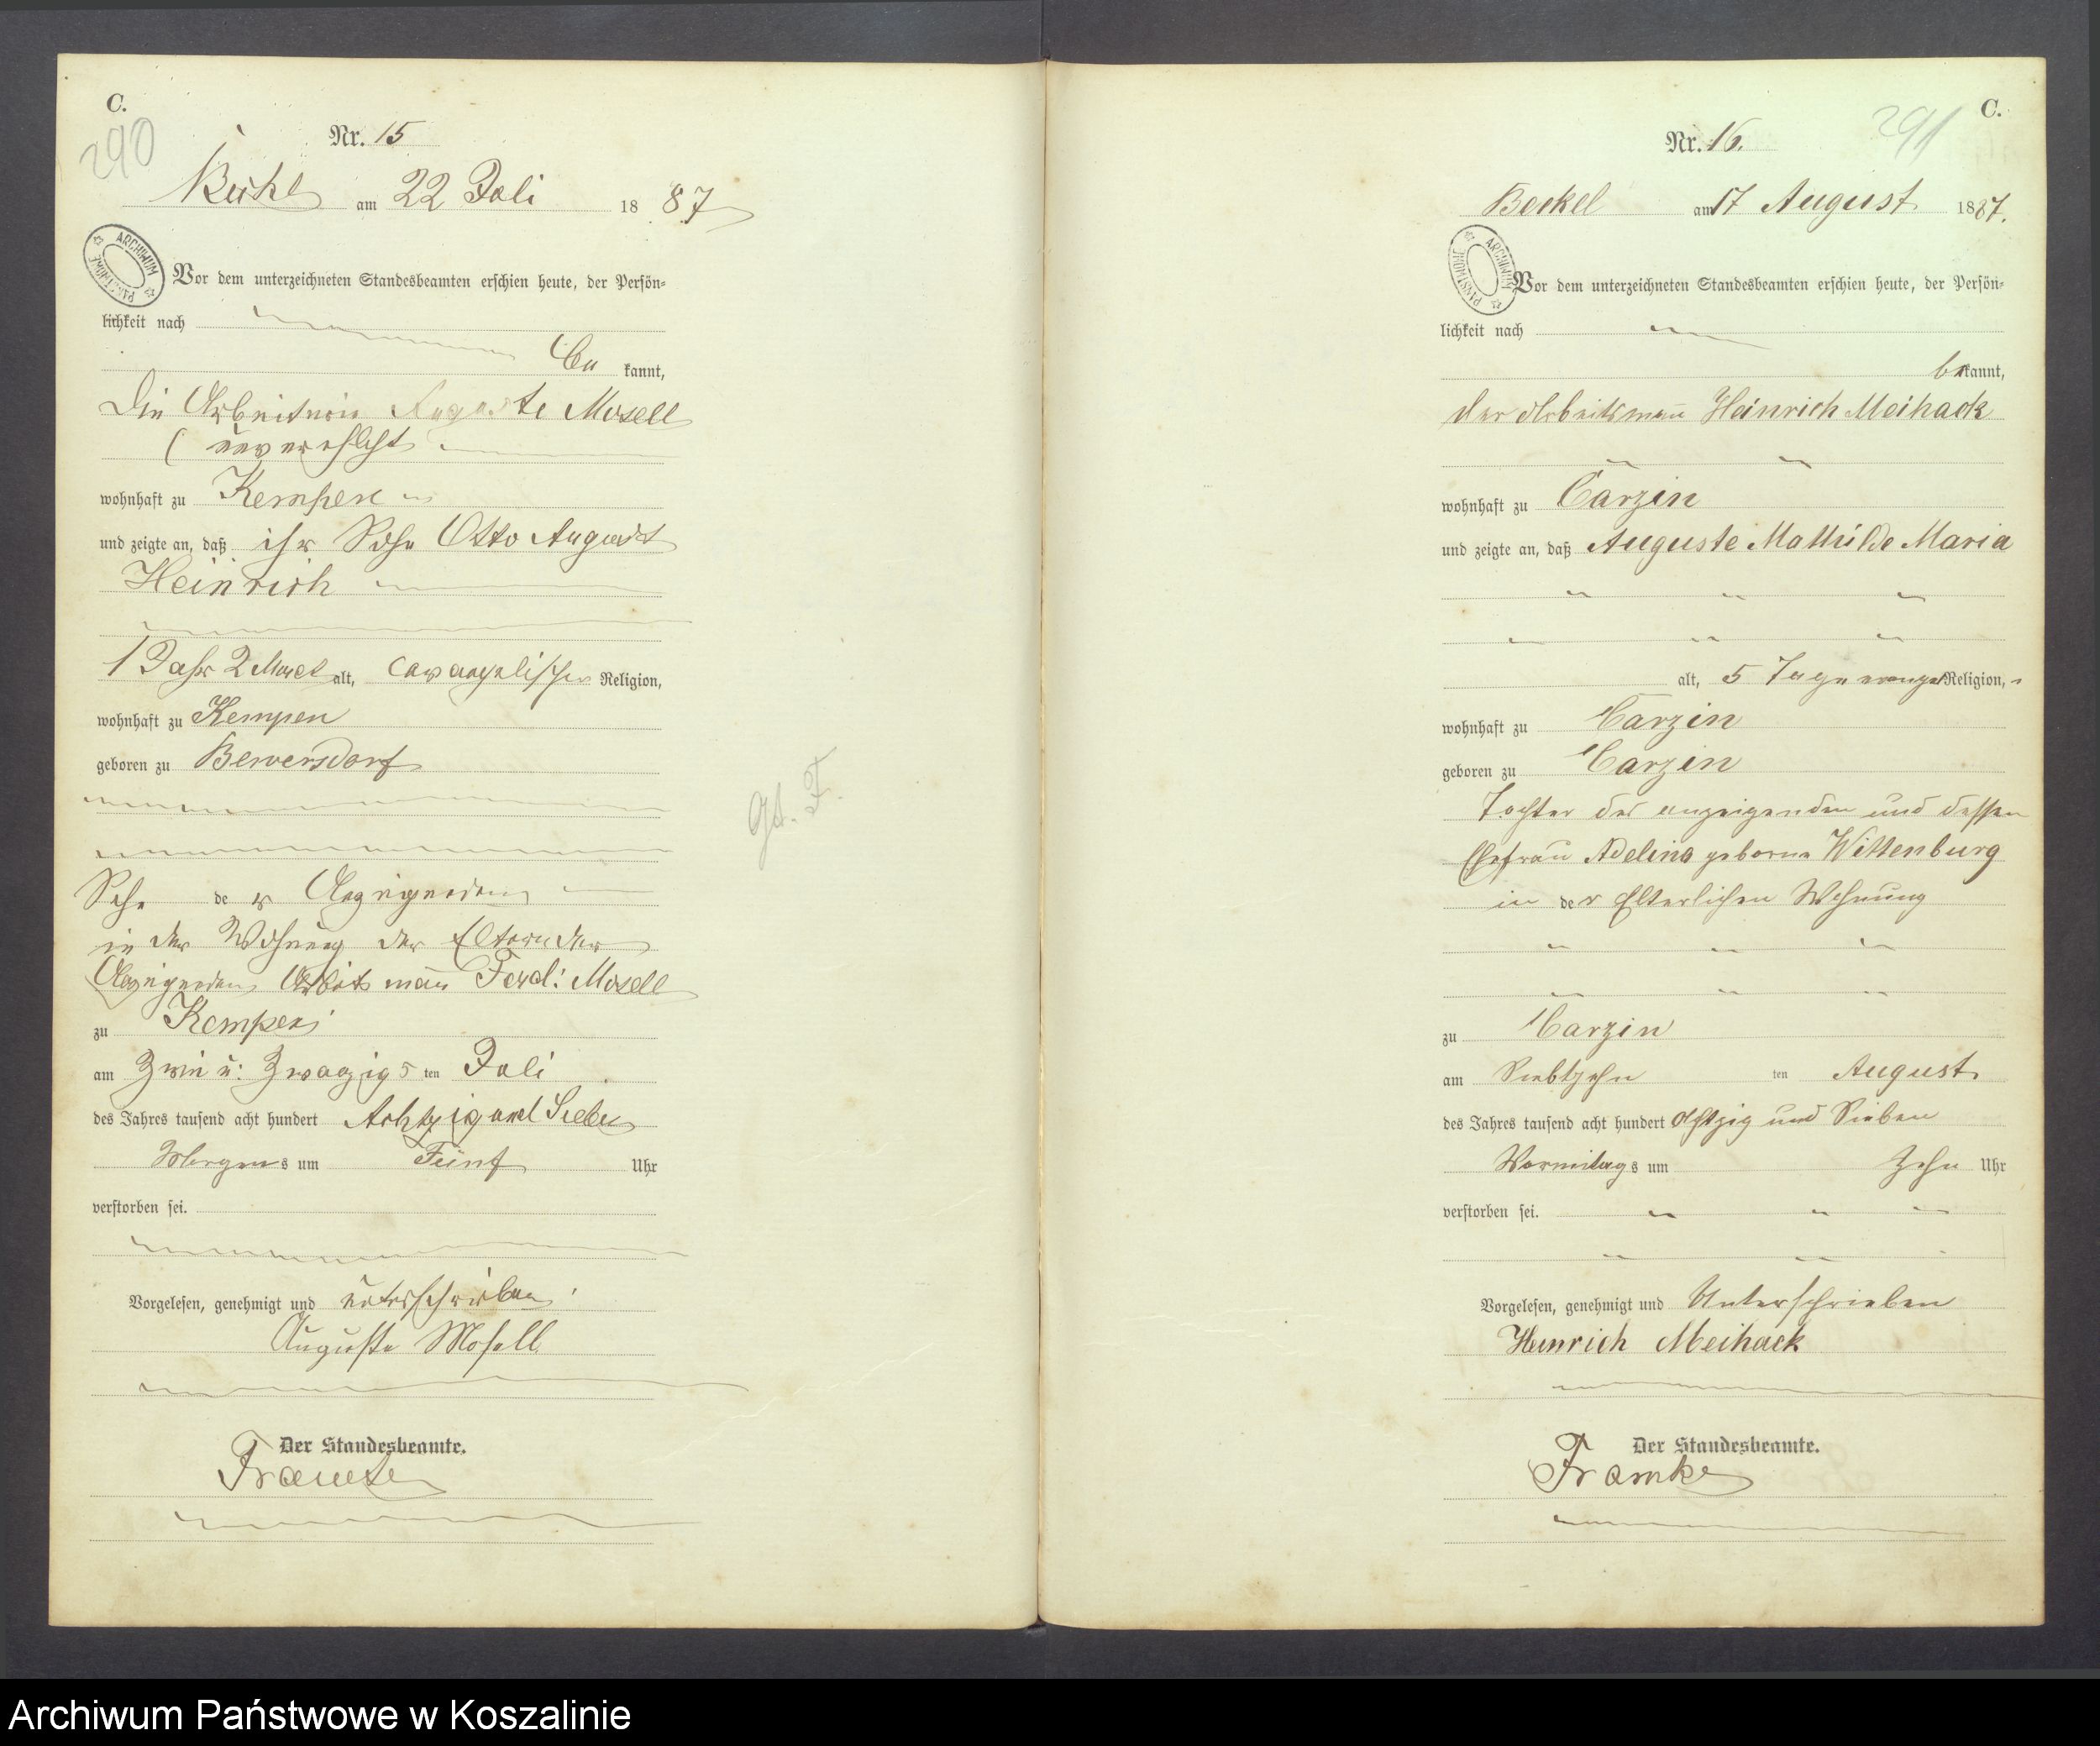 C.
290
Nr. 15
am 22 Juli 1887
ARCHIWUM PAŃSTWOWE
Vor dem unterzeichneten Standesbeamten erschien heute, der Persön-
lichkeit nach
be kannt,
Die Arbeiterin Auguste Mosell
( unverehlicht
wohnhaft zu Kempen
und zeigte an, daß ihr Sohn Otto August
Heinrich
1 Jahr 2 Monat alt, evangelischer Religion,
wohnhaft zu Kempen
geboren zu Bewersdorf
Sohn der Anzeigenden
in der Wohnung der Eltern der
Anzeigenden Arbeitsmann Ferd: Mosell
zu Kempen
am Zwei u: Zwanzigsten Juli
des Jahres tausend acht hundert Achtzig und Sieben
Morgens um Fünf Uhr
verstorben sei.
Vorgelesen, genehmigt und unterschrieben
Auguste Mosell
Der Standesbeamte.
gt. F.
C.
291
Nr. 16.
Beckel am 17 August 1887.
ARCHIWUM PAŃSTWOWE
Vor dem unterzeichneten Standesbeamten erschien heute, der Persön-
lichkeit nach
bekannt,
der Arbeitsmann Heinrich Meihack
wohnhaft zu Carzin
und zeigte an, daß Auguste Mathilde Maria
alt, 5 Tage evangel Religion,
wohnhaft zu Carzin
geboren zu Carzin
Tochter des anzeigenden und dessen
Ehefrau Adeline geborne Wittenburg
in der Elterlichen Wohnung
zu Carzin
am Siebtzehn ten August
des Jahres tausend acht hundert Achtzig und Sieben
Vormitags um Zehn Uhr
verstorben sei.
Vorgelesen, genehmigt und Unterschrieben
Heinrich Meihack
Der Standesbeamte.
Framke
Archiwum Państwowe w Koszalinie